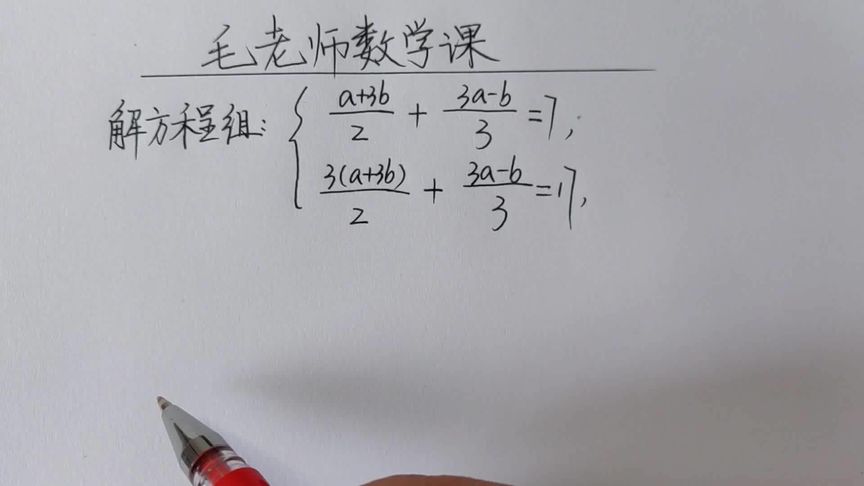 毛老师数学课
解方程组: { (a+3b)/2 + (3a-b)/3 = 7,
3(a+3b)/2 + (3a-b)/3 = 17,